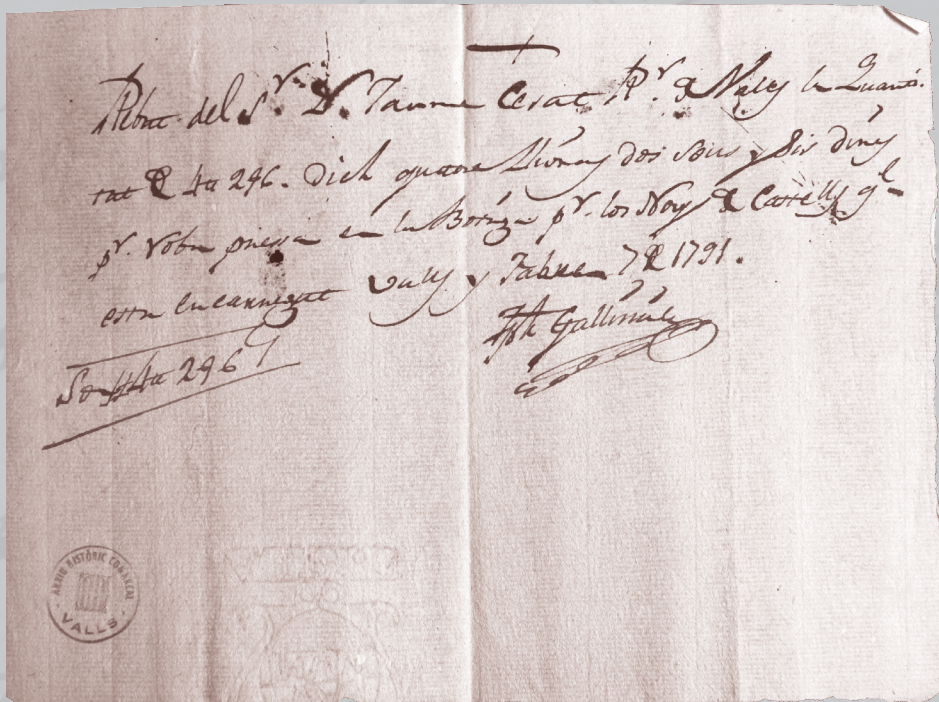 Rebut del Sr. Dn. Jaume Cesat Pr. de Valls la Quanti-
tat de 4 ll 2 s 6. dich quatre lliuras dos sous y sis diners
pr. roba presa en la Botiga pr. los Noys de Castells ql.
estan encarregat Valls y Fabrer 7 de 1791.
Son 4 ll 2 s 6
ARXIU HISTÒRIC COMARCAL
VALLS